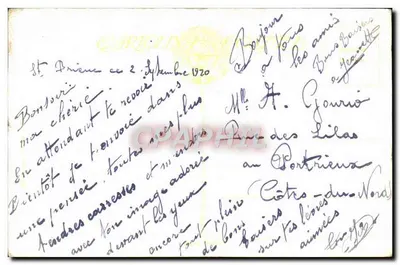 St Brieuc ce 2 Septembre 1920
Bonsoir
ma chérie
En attendant te revoir
Bientôt je t'envoie dans
une pensée toutes mes plus
tendres caresses et m'endors
avec ton image adorée
devant les yeux
encore tout plein
de bons baisers
sur tes lèvres
aimées
Bonjour
à tous
les amis
Bons Baisers
à Jeannette
Mlle A. Gourio
Rue des Lilas
au Portrieux
(Côtes-du-Nord)